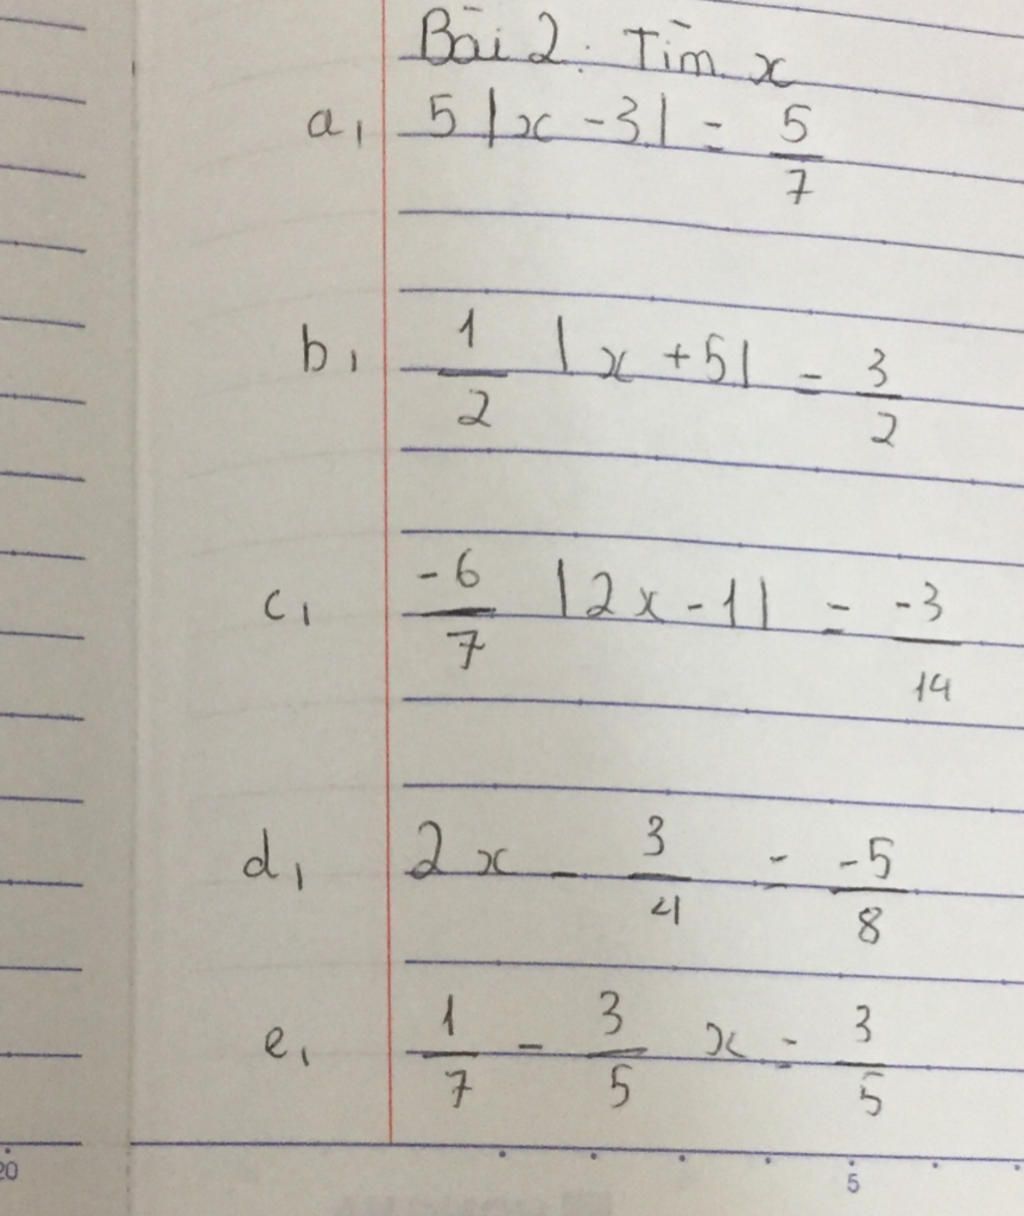 Bài 2: Tìm x
a, 5 |x - 3| = 5/7
b, 1/2 |x + 5| = 3/2
c, -6/7 |2x - 1| = -3/14
d, 2x - 3/4 = -5/8
e, 1/7 - 3/5 x = 3/5
20 5